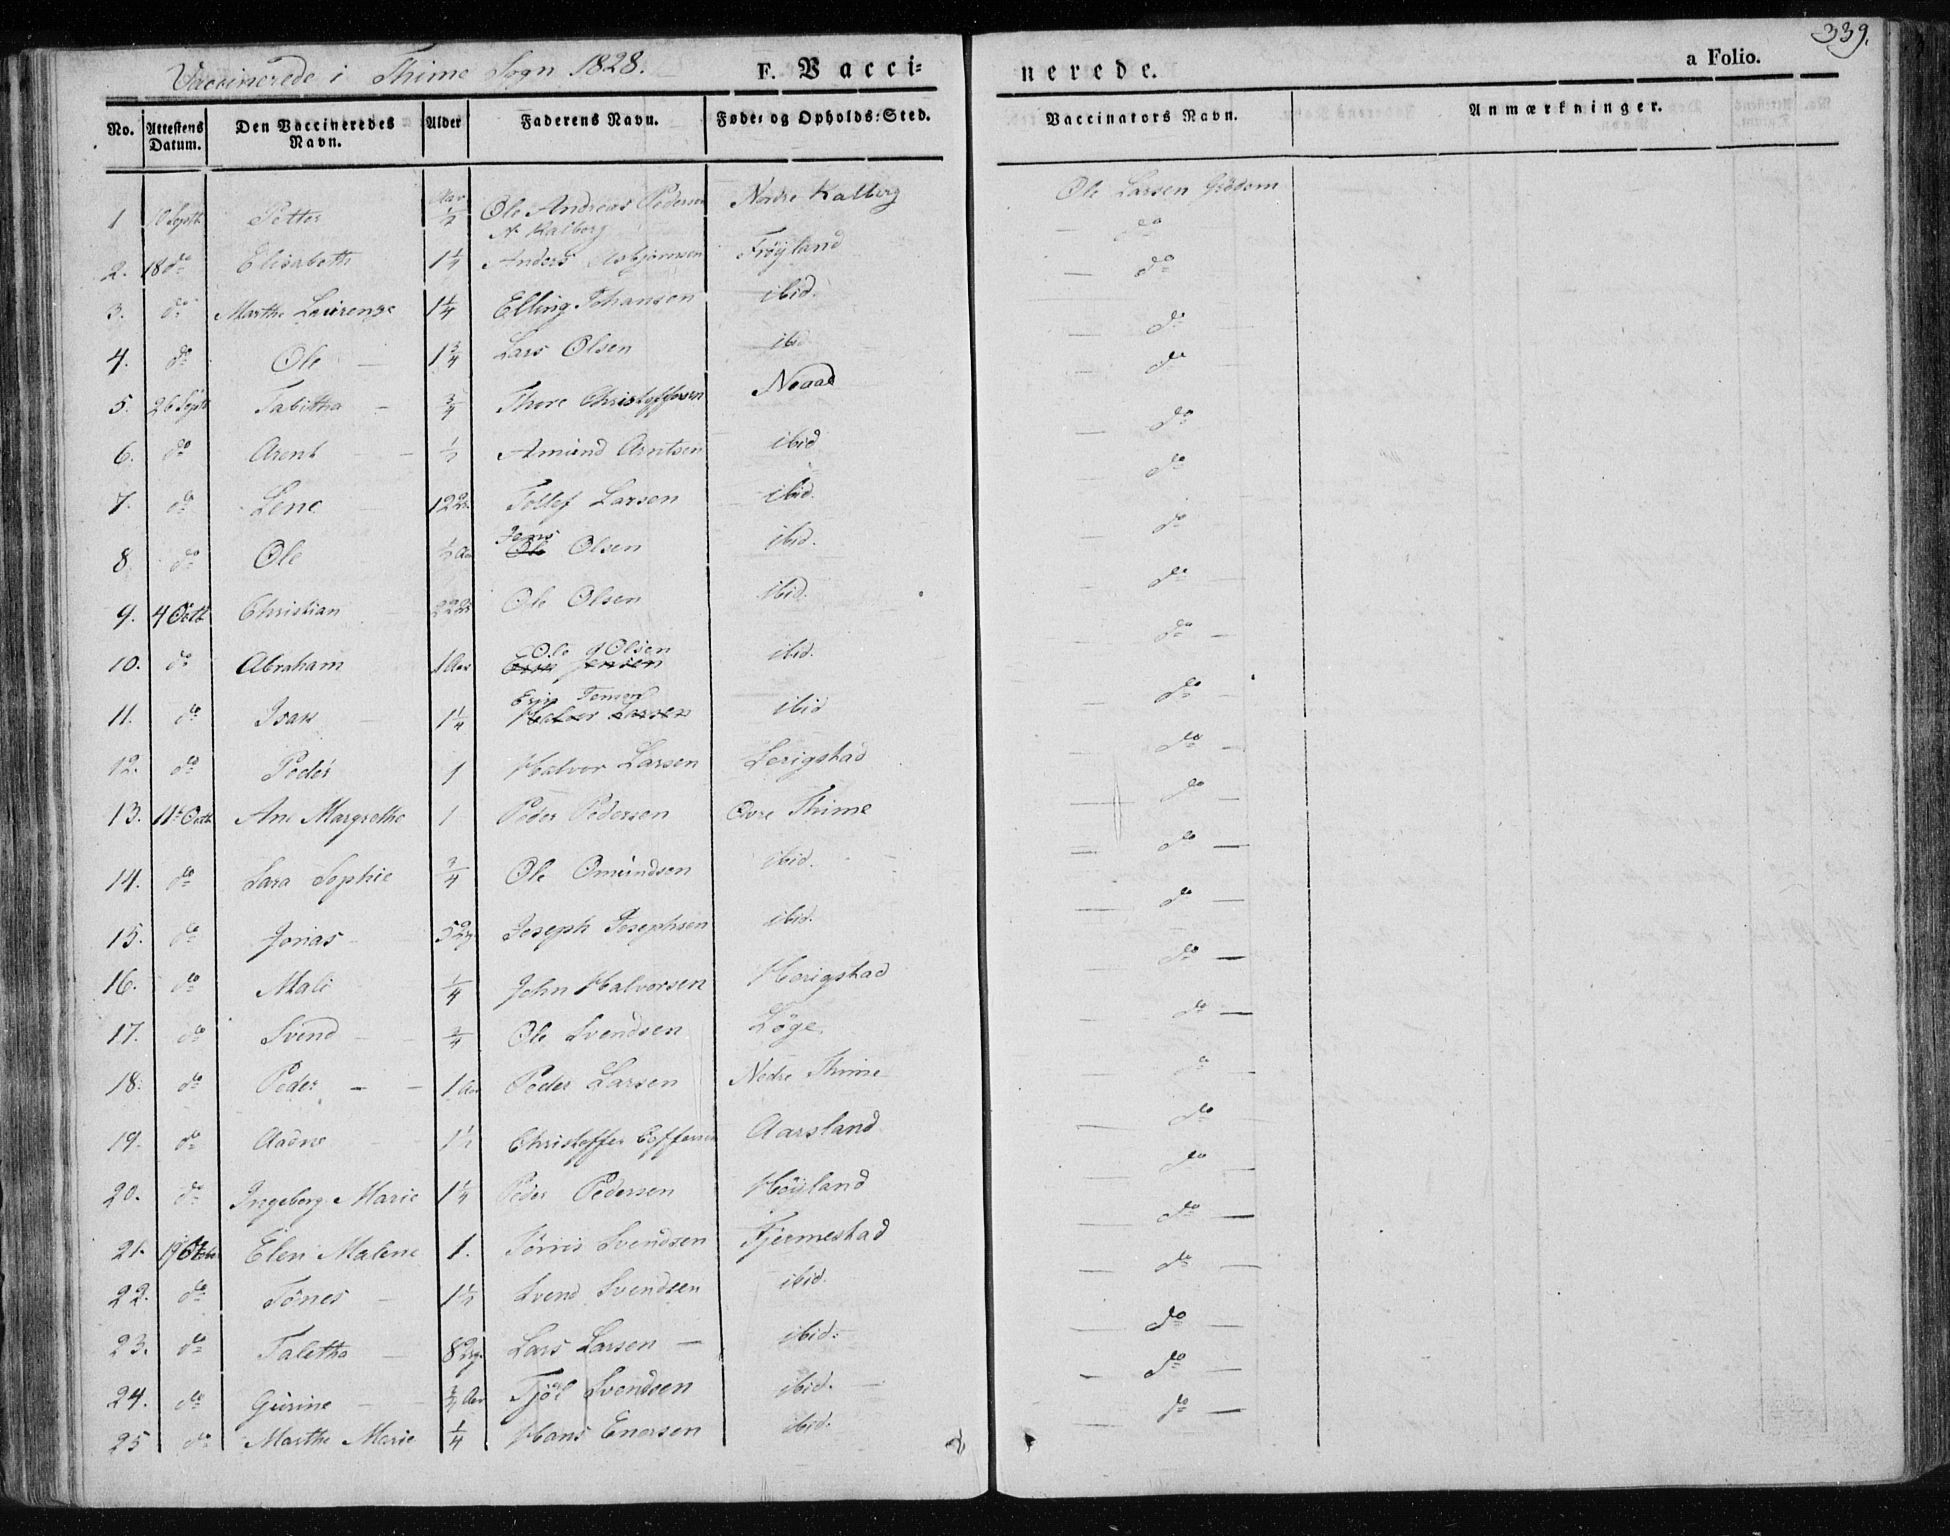 339.
Vaccinerede i Thime Sogn 1828. F. Vacci= nerede. a Folio.
No. Attestens Datum. Den Vaccineredes Navn. Alder Faderens Navn. Føde= og Opholds=Sted. Vaccinators Navn. Anmærkninger.
1 10 Septb Petter Aar ½ Ole Andreas Pedersen Nordre Kalberg Ole Larsen Grödem
N. Kalberg do
2. 18 do Elisabeth 1¼ Anders Asbjørnsen Frøyland — do
3. do Marthe Laurenze 1¼ Elling Johansen ibid. — do
4. do Ole — 1¾ Lars Olsen ibid — do
5. 26 Septb Tabitha — ¾ Thore Christoffersen Noaae — do
6. do Arent — ½ Amund Arntsen ibid — do
7. do Lene 12 Tollef Larsen ibid. — do
8 do Ole ½ Aar Jens Olsen ibid. — do
9. 4 Octb Christian 22 Ole Olsen ibid. — do —
10. do Abraham 1 Aar Ole Olsen ibid. — do —
Jensen
11. do Isak 1¼ Eric Jensen ibid — do —
Halvor Larsen
12. do Peder 1 Halvor Larsen Lerigstad — do —
13. 11 Octb Ane Margrethe 1 Peder Pedersen Øvre Thime — do —
14. do Lara Sophie ¾ Ole Omundsen ibid. — do —
15. do Jonas 5 Joseph Josephsen ibid. — do —
16. do Mali ¼ John Halvorsen Herigstad — do —
17. do Svend — ¾ Ole Svendsen Løge — do —
18. do Peder — 1 Aar Peder Larsen Nedre Thime — do —
19. do Aadne 1½ Christoffer Aarsland — do —
20. do Ingeborg Marie 1¼ Peder Pedersen Høyland — do —
21. 19 Octbr Elen Malene 1. Tønnis Svendsen Fjermestad — do —
22. do Tönes — 1½ Svend Svendsen ibid. — do —
23. do Taletha — 8 Lars Larsen — ibid. — do —
24. do Gurine — ¾ Aar Tjöl Svendsen ibid. — — do —
25 do Marthe Marie ¼ Hans Enersen ibid. — do —